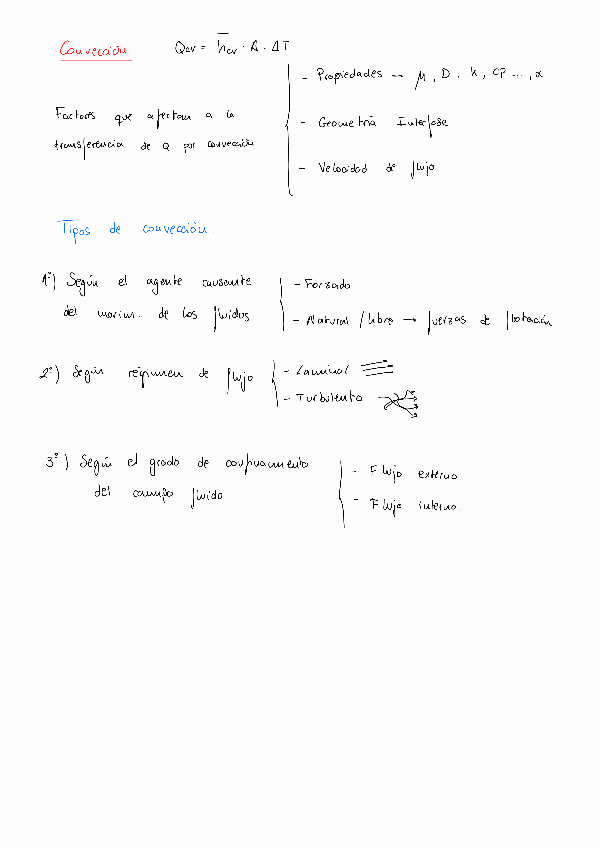 Convección Qcv = h̅cv · A · ΔT
- Propiedades -- μ, D, k, cp ..., α
Factores que afectan a la
- Geometría Interfase
transferencia de Q por convección
- Velocidad de flujo
Tipos de convección.
1º) Según el agente causante
- Forzado
del movim. de los fluidos
- Natural / libre → fuerzas de flotación
2º) Según régimen de flujo
- Laminar
- Turbulento
3º) Según el grado de confinamiento
- Flujo externo
del campo fluido
- Flujo interno.